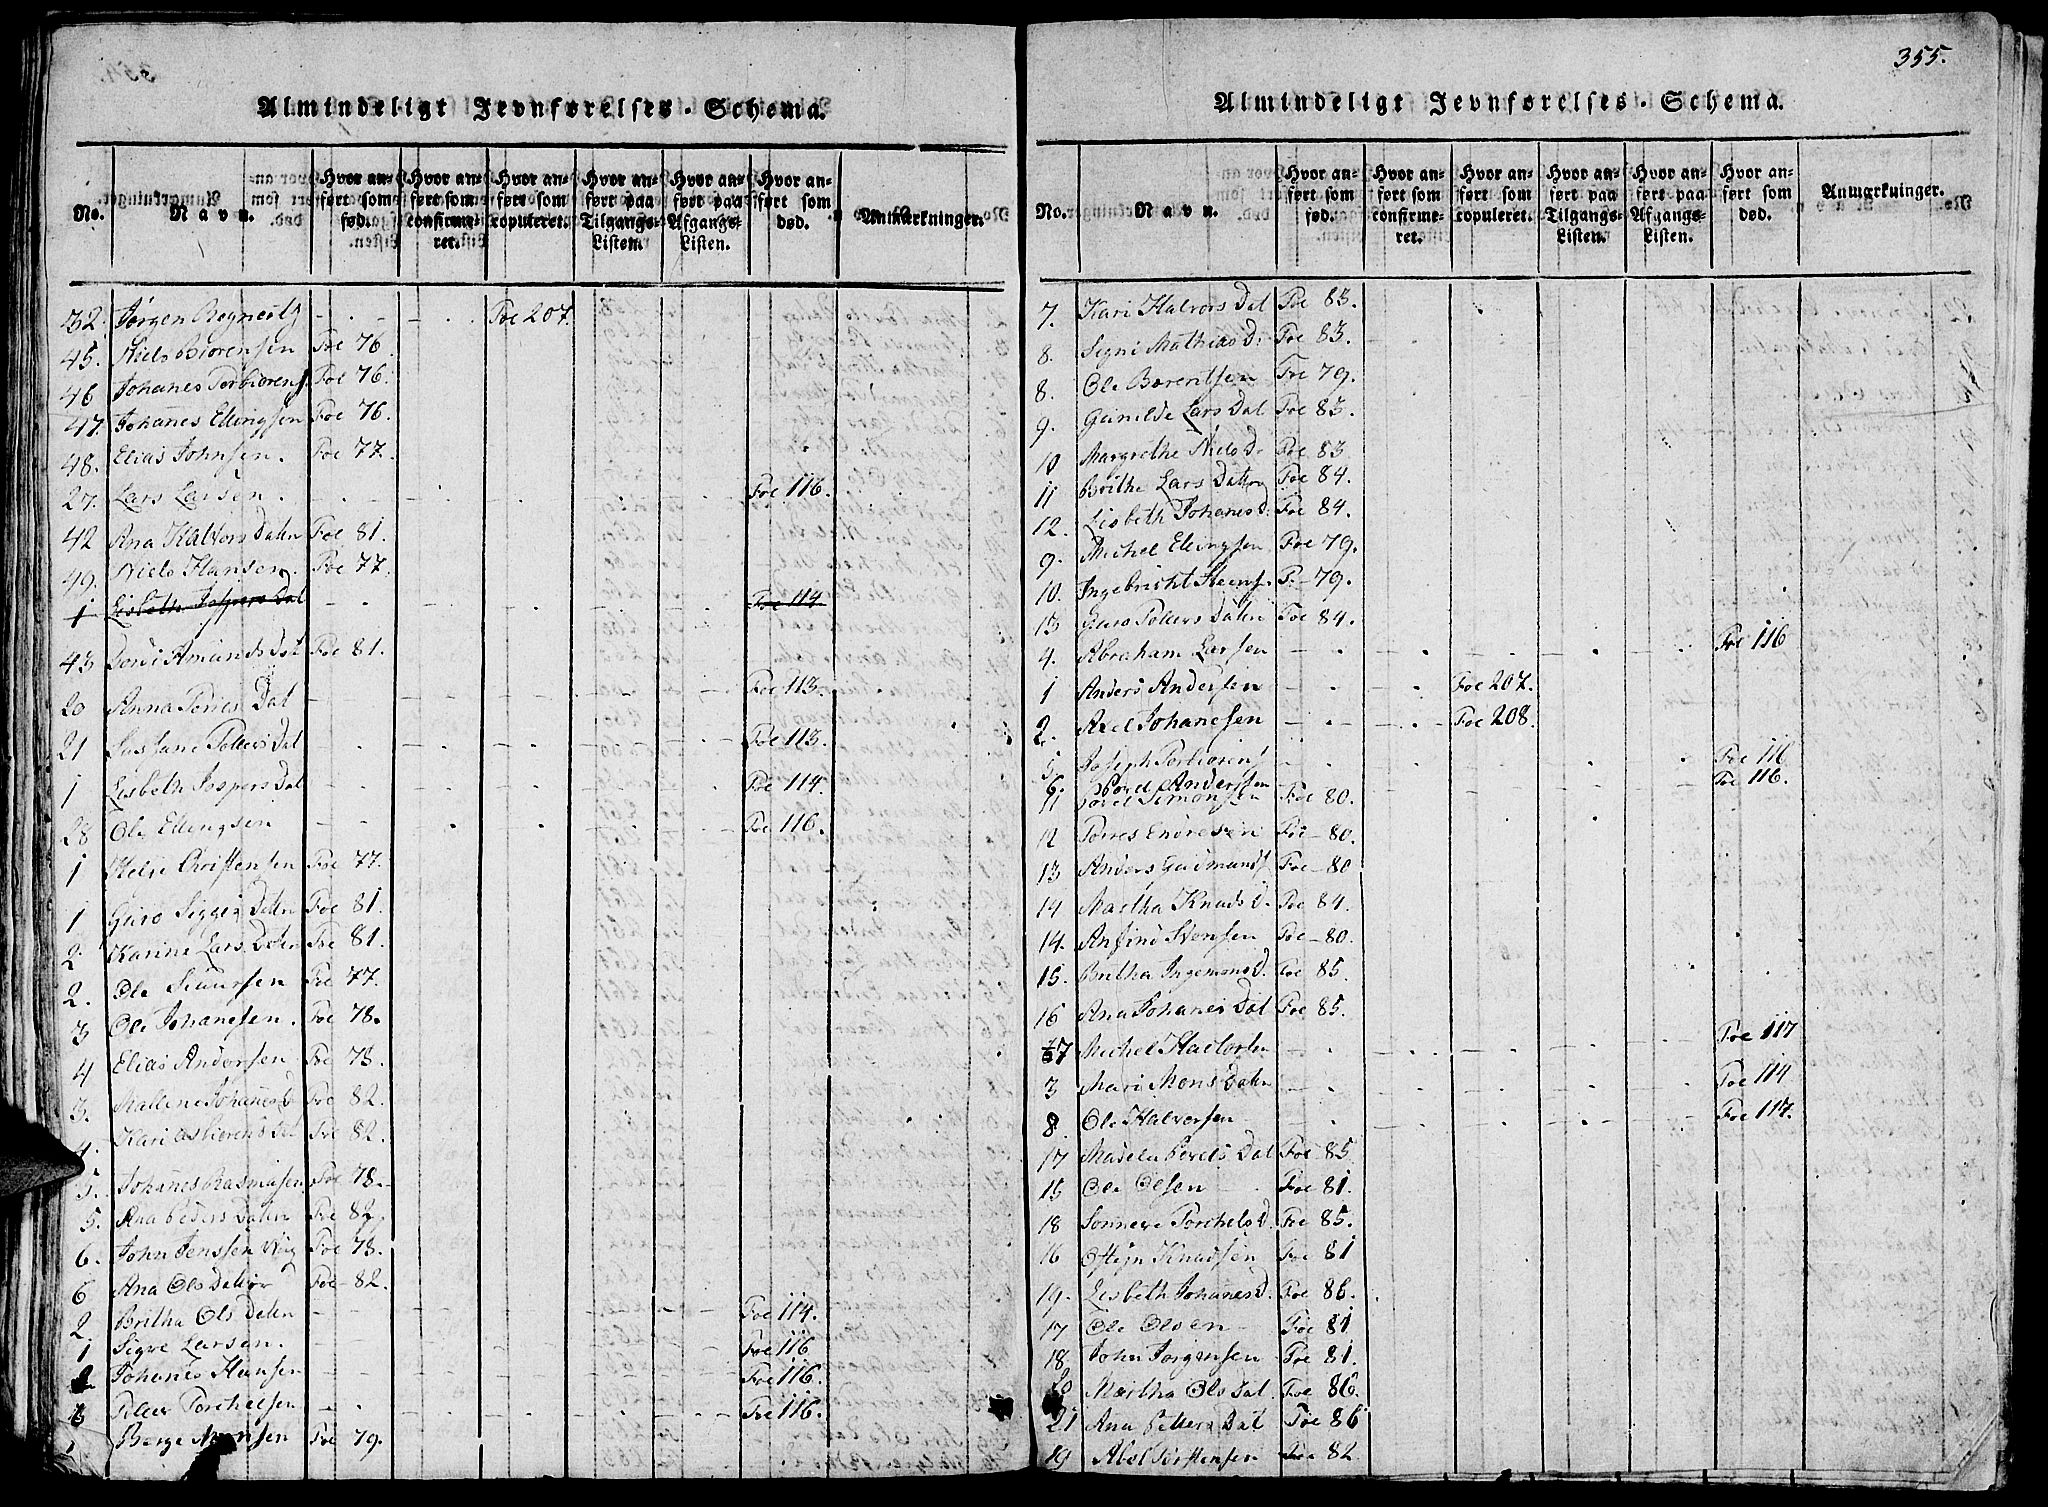 355.
Almindeligt Jevnførelses-Schema.
No. Navn. Hvor anført som fød. Hvor anført som confirmeret. Hvor anført som copuleret. Hvor anført paa Tilgangs-Listen. Hvor anført paa Afgangs-Listen. Hvor anført som død. Anmærkninger.
32. Jørgen Foe 207.
45. Niels Biørensen Foe 76
46 Johanes Torbiørens Foe 76.
47. Johanes Ellingsen Foe 76.
48. Elias Johnsen. Foe 77.
27. Lars Larsen. Foe 116.
42 Ana Halvors Daten Foe 81.
49. Niels Hansen. Foe 77.
1 Lisbeth Jespers Dat Foe 114
43 Amunds Dat Foe 81.
20 Anna Torres Dat Foe 113.
21 Sussane Pettersdat Foe 113.
1 Lisbeth Jespers Dat Foe 114.
28 Ole Ellingsen Foe 116.
1 Helje Christensen Foe 77.
1 Guro Sigges Daten Foe 81.
2. Karine Lars Daten Foe 81.
2. Ole Siuursen Foe 77.
3 Ole Johanesen. Foe 78.
4 Elias Andersen. Foe 78.
3. Mallene Johanes D Foe 82.
4. Kari Foe 82.
5. Johanes Rasmusen Foe 78.
5. Ana Peders Daten Foe 82.
6. John Jenssen Foe 78.
6 Ana Ols Datter Foe 82.
2 Britha Ols Daten Foe 114.
1 Sigve Larsen. Foe 116
2 Johanes Hansen Foe 116.
3 Peder Torchelsen Foe 116.
7 Børge Monsen Foe 79.
Almindeligt Jevnførelses-Schema.
No. Navn. Hvor anført som fød. Hvor anført som confirmeret. Hvor anført som copuleret. Hvor anført paa Tilgangs-Listen. Hvor anført paa Afgangs-Listen. Hvor anført som død. Anmærkninger.
7. Kari Halvors Dat Foe 83.
8. Signi Mathias D. Foe 83.
8. Ole Børentsen Foe 79.
9. Gunilde Lars Dat Foe 83.
10 Margrethe Niels D. Foe 83
11 Brithe Lars Daten Foe 84.
12. Lisbeth Johanes D. Foe 84.
9. Michel Ellingsen Foe 79.
10. Ingebricht Steens. F. 79.
13 Guro Petters Daten Foe 84.
4. Abraham Larsen Foe 116
1 Anders Andersen Foe 207.
2. Axel Johanesen Foe 208.
5 Joseph Torbiørens Foe 116
6. Povel Anderssen Foe 116.
11 Povel Simonsen Foe 80.
12 Torres Endresen Foe 80.
13 Anders Gudmunds Foe 80
14 Martha Knuds D. Foe 84.
14. Anfind Svensen Foe 80.
15. Britha Ingemons D. Foe 85.
16 Ana Johanes Dat Foe 85.
7 Michel Halvorsen Foe 117
3 Mari Mons Daten Foe 114
8. Ole Halvorsen Foe 117.
17 Madele Povels Dat Foe 85.
15 Ole Olsen Foe 81.
18 Sonneve Torchels D. Foe 85.
16 Østejn Knudsen Foe 81
19. Lisbeth Johanes D. Foe 86.
17 Ole Olsen Foe 81
18 John Jørgensen Foe 81.
20 Martha Ols Dat. Foe 86.
21 Ana Petters Dat Foe 86
19 Abel Torstensen Foe 82